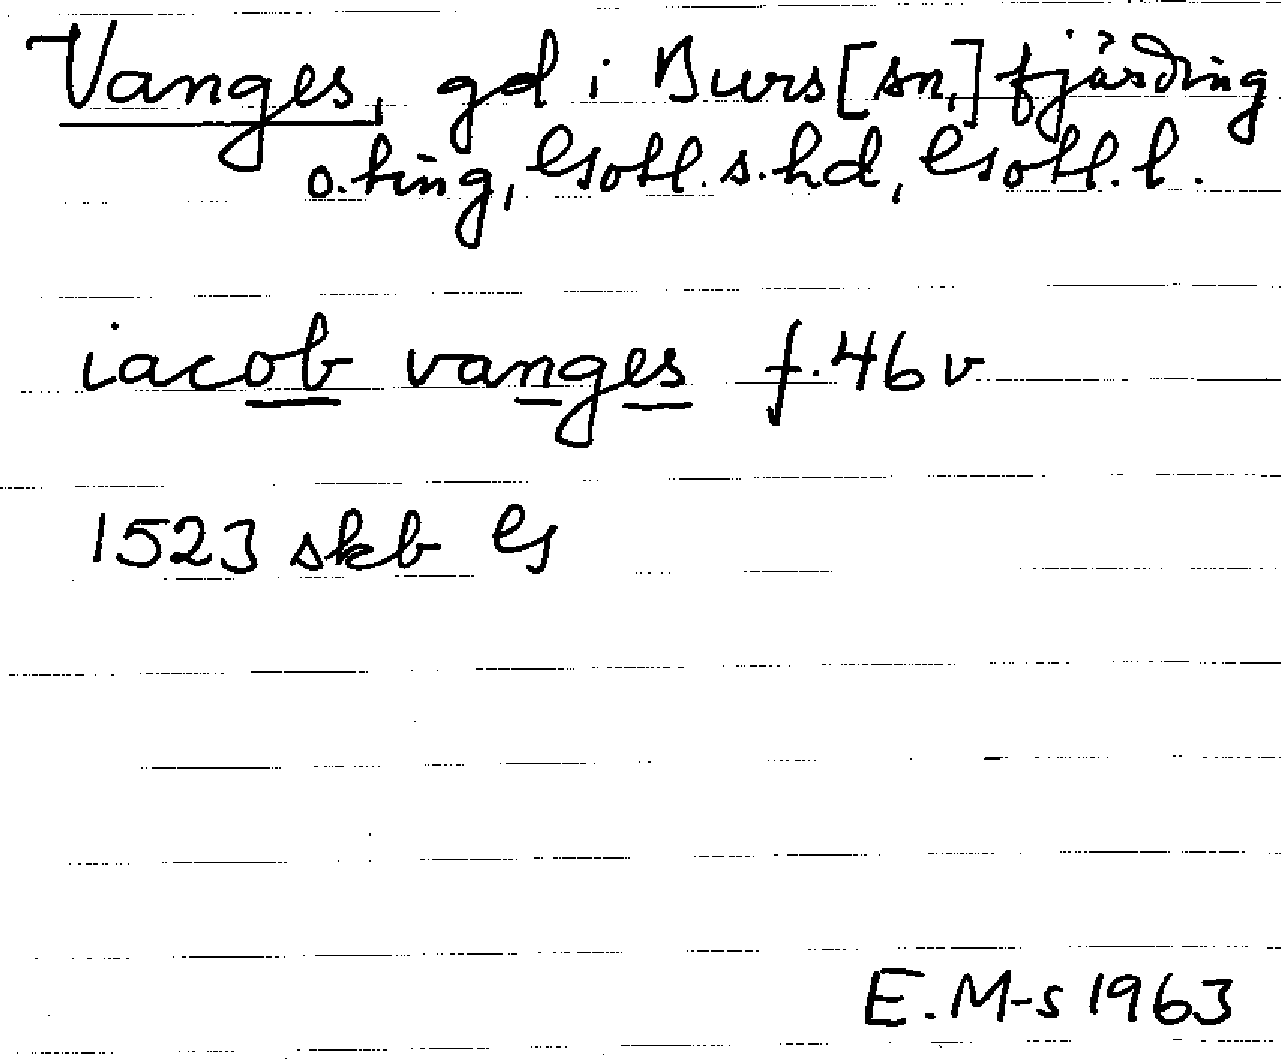 Vanges, gd i Burs [sn,] fjärding
o. ting, Gotl. s. hd, Gotl. l.
iacob vanges f. 46 v
1523 skb G
E. M-s 1963